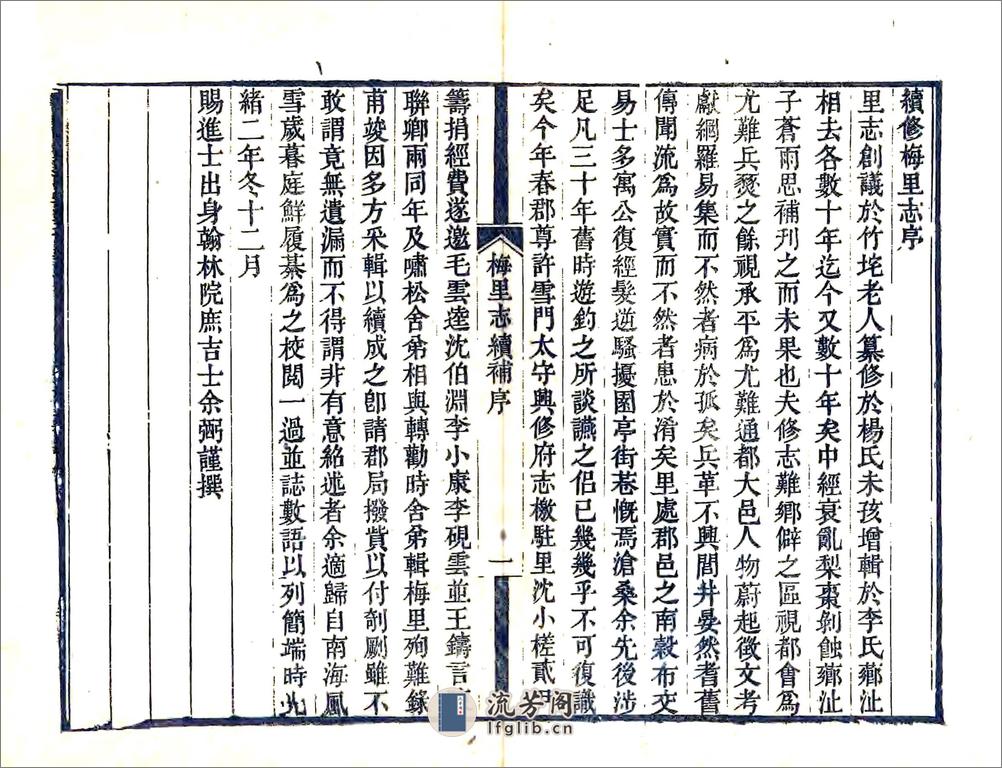 續修梅里志序
里志創議於竹垞老人纂修於楊氏未孩增輯於李氏薌沚
相去各數十年迄今又數十年矣中經衰亂梨棗剝蝕薌沚
子蒼雨思補刊之而未果也夫修志難鄉僻之區視都會爲
尤難兵燹之餘視承平爲尤難通都大邑人物蔚起徵文考
獻網羅易集而不然者病於孤矣兵革不興閭井晏然耆舊
傳聞流爲故實而不然者患於淆矣里處郡邑之南穀布交
易士多寓公復經髮逆騷擾園亭街巷慨焉滄桑余先後涉
足凡三十年舊時遊釣之所談讌之侶已幾幾乎不可復識
矣今年春郡尊許雪門太守興修府志檄駐里沈小槎貳尹
梅里志續補序
一
籌捐經費遂邀毛雲逵沈伯淵李小康李硯雲並王鑄言
聯卿兩同年及嘯松舍弟相與轉勸時舍弟輯梅里殉難錄
甫竣因多方采輯以續成之卽請郡局撥貲以付剞劂雖不
敢謂竟無遺漏而不得謂非有意紹述者余適歸自南海風
雪歲暮庭鮮履綦爲之校閱一過並誌數語以列簡端時光
緒二年冬十二月
賜進士出身翰林院庶吉士余弼謹撰
流芳阁
lfglib.cn